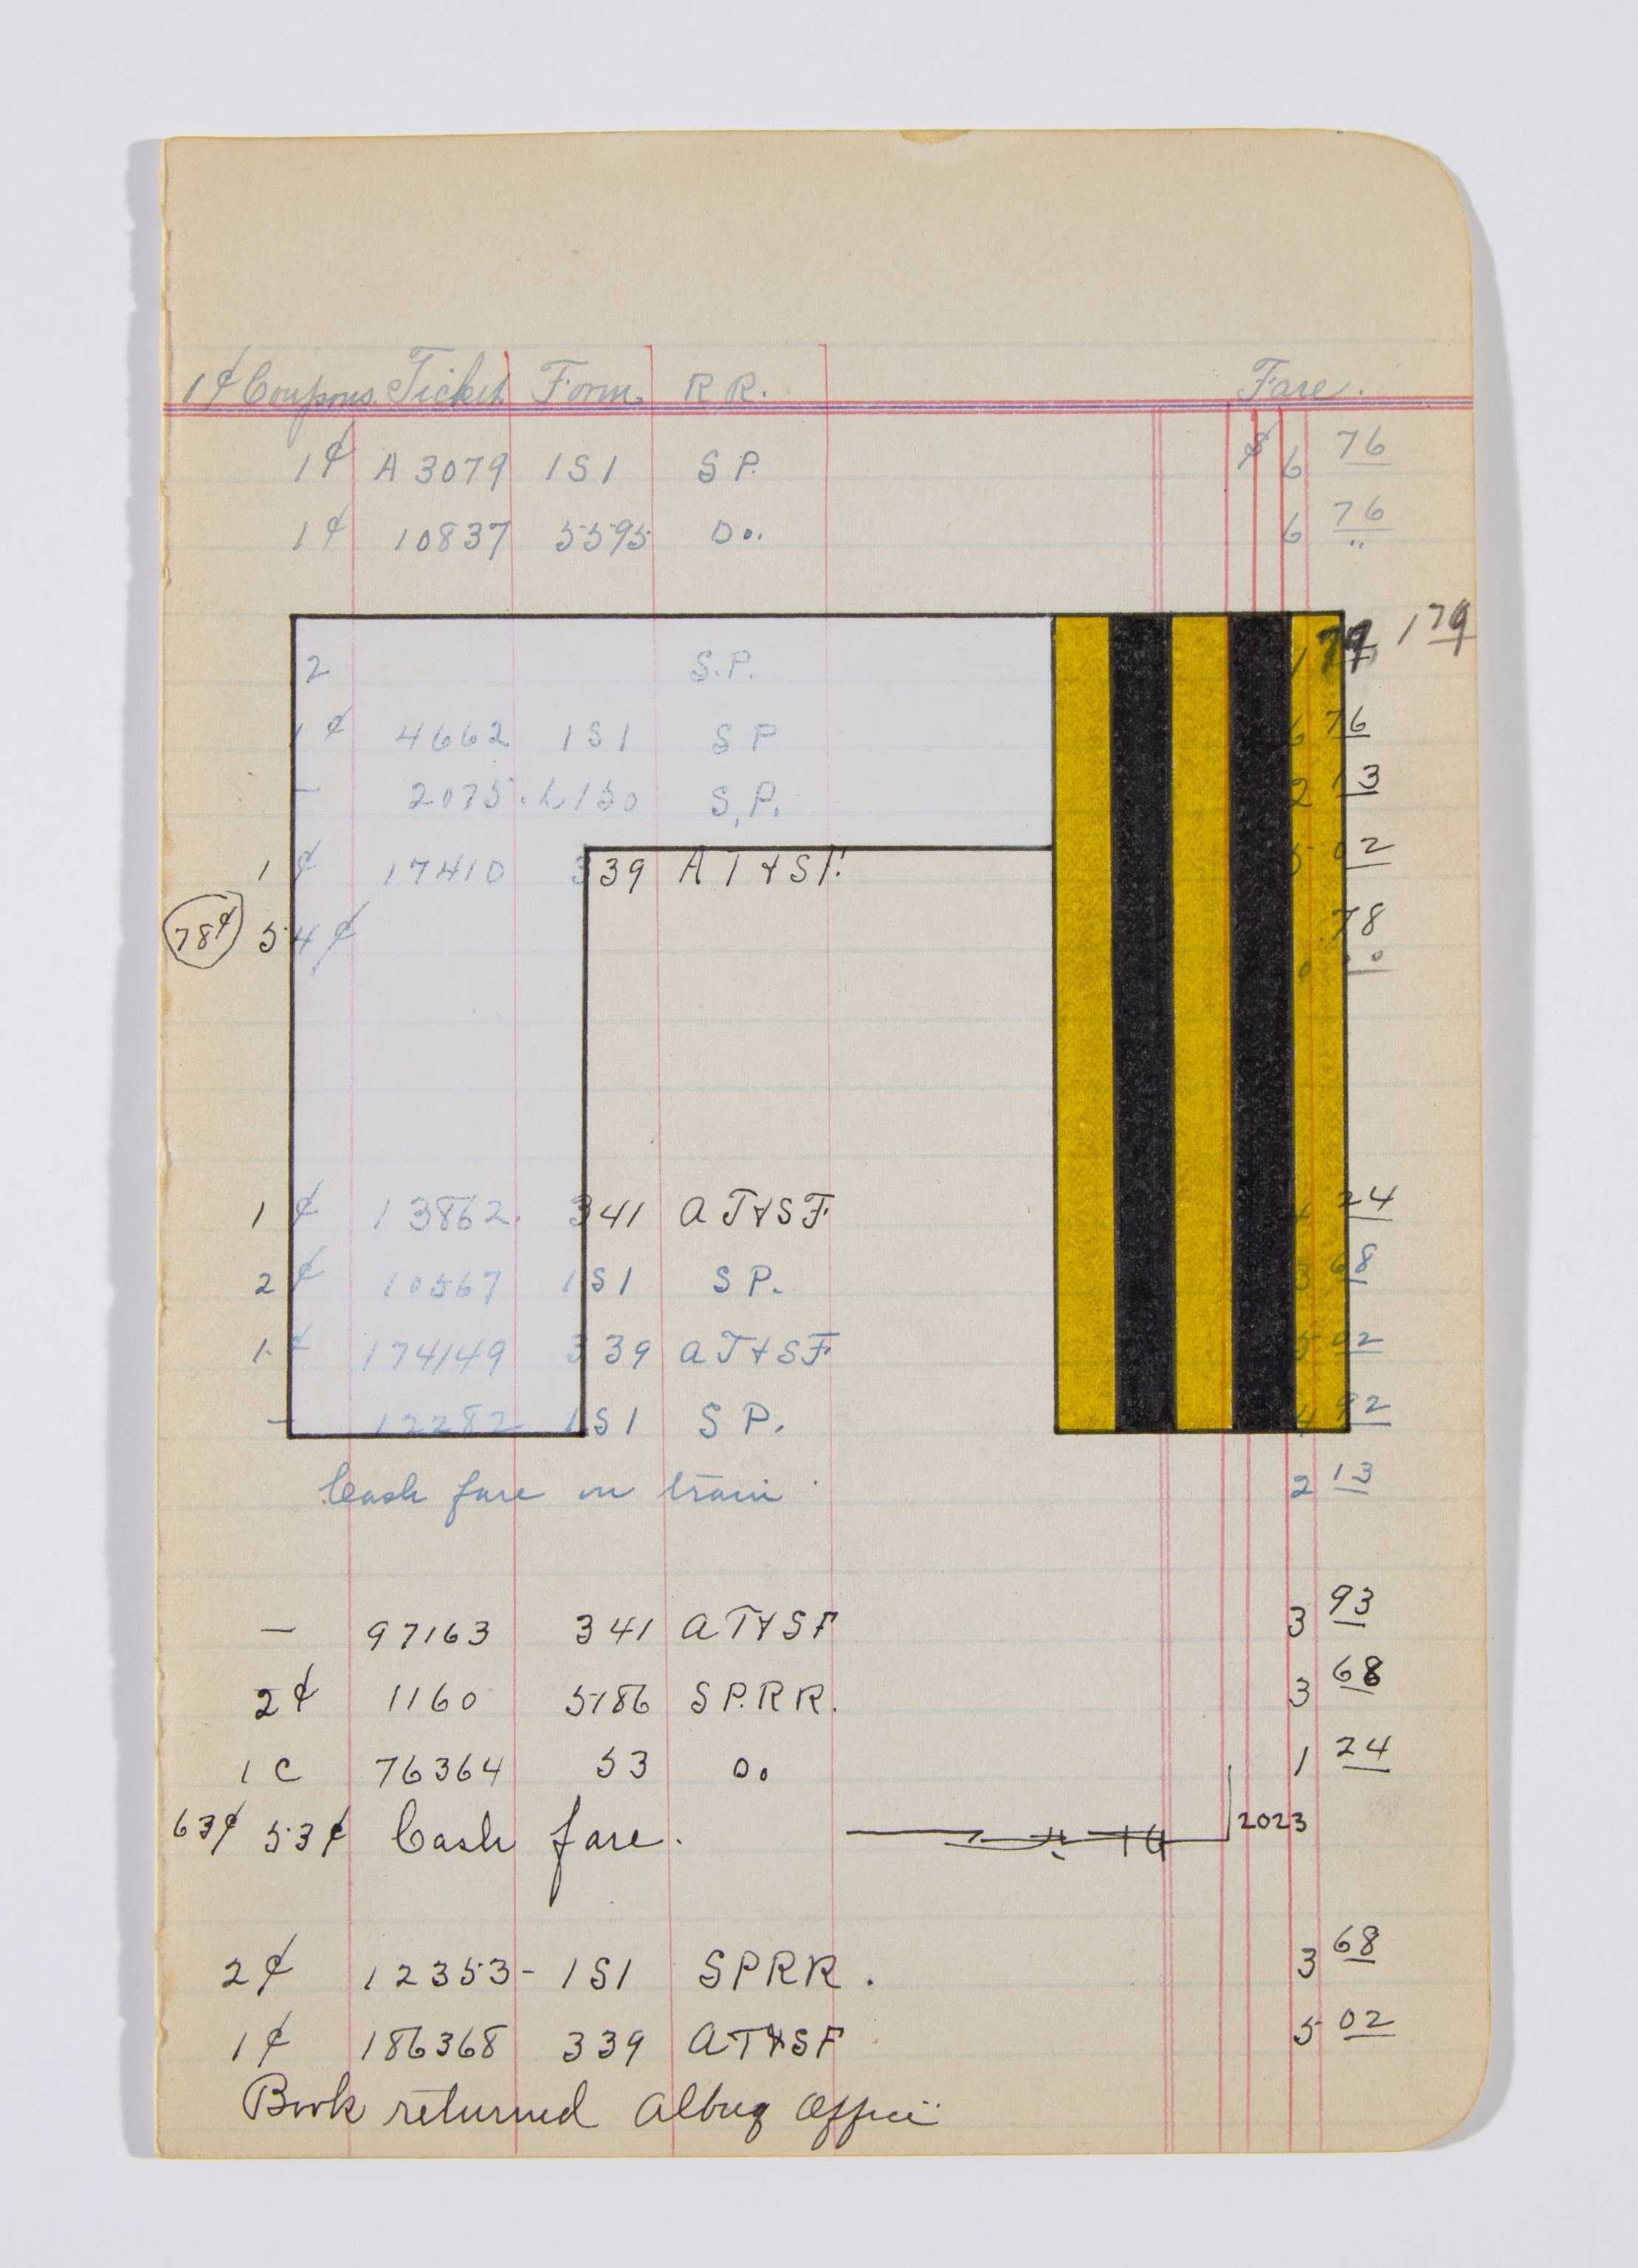 1¢ Coupons Ticket Form RR. Fare.
1¢ A 3079 151 S P. $ 6 76
1¢ 10837 5595 Do. 6 76
2 S.P. 1 79 1 79
1¢ 4662 151 S P 6 76
- 2075 L150 S.P. 2 13
1¢ 17410 339 AT&SF. 5 02
78¢ 54¢ .78
1¢ 13862. 341 AT&SF 4 24
2¢ 10567 151 S P. 3 68
1¢ 174149 339 AT&SF 5 02
- 12282 151 S P. 4 92
Cash fare on train 2 13
- 97163 341 AT&SF 3 93
2¢ 1160 5186 S P. R R. 3 68
1 C 76364 53 Do 1 24
63¢ 53¢ Cash fare. 2023
2¢ 12353- 151 SPRR. 3 68
1¢ 186368 339 AT&SF 5 02
Book returned Albuq Office